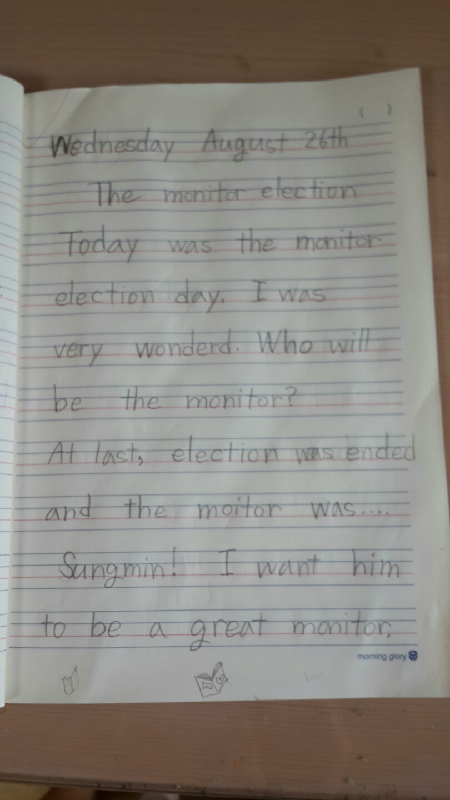 ( )
Wednesday August 26th
The monitor election
Today was the monitor
election day. I was
very wonderd. Who will
be the monitor?
At last, election was ended
and the moitor was....
Sungmin! I want him
to be a great monitor.
morning glory